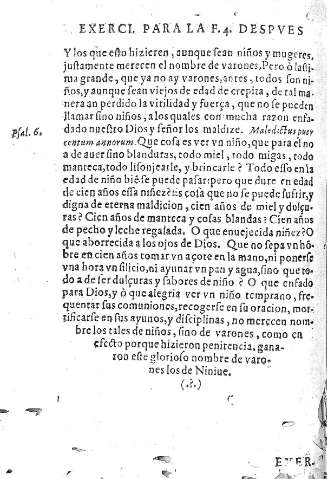 EXERCI. PARA LA F.4. DESPVES
Y los que esto hizieren, aunque sean niños y mugeres,
justamente merecen el nombre de varones. Pero ò lasti
ma grande, que ya no ay varones, antes, todos son ni-
ños, y aunque sean viejos de edad de crepita, de tal ma
nera an perdido la virilidad y fuerça, que no se pueden
llamar sino niños, a los quales con mucha razon enfa
dado nuestro Dios y señor los maldize. Maledictus puer
Psal. 6.
centum annorum. Que cosa es ver vn niño, que para el no
a de auer sino blanduras, todo miel, todo migas, todo
manteca, todo lisonjearle, y brincarle? Todo esso en la
edad de niño biē se puede pasar: pero que dure en edad
de cien años essa niñez: es cosa que no se puede sufrir, y
digna de eterna maldicion, cien años de miel y dulçu-
ras? Cien años de manteca y cosas blandas? Cien años
de pecho y leche regalada. O que enuejecida niñez? O
que aborrecida a los ojos de Dios. Que no sepa vn hō
bre en cien años tomar vn açote en la mano, ni ponerse
vna hora vn silicio, ni ayunar vn pan y agua, sino que to
do a de ser dulçuras y sabores de niño? O que enfado
para Dios, y ò que alegria ver vn niño temprano, fre-
quentar sus comuniones, recogerse en su oracion, mor-
tificarse en sus ayunos, y disciplinas, no merecen nom-
bre los tales de niños, sino de varones, como en
efecto porque hizieron penitencia, gana-
ron este glorioso nombre de varo-
nes los de Niniue.
(.?.)
EXER-